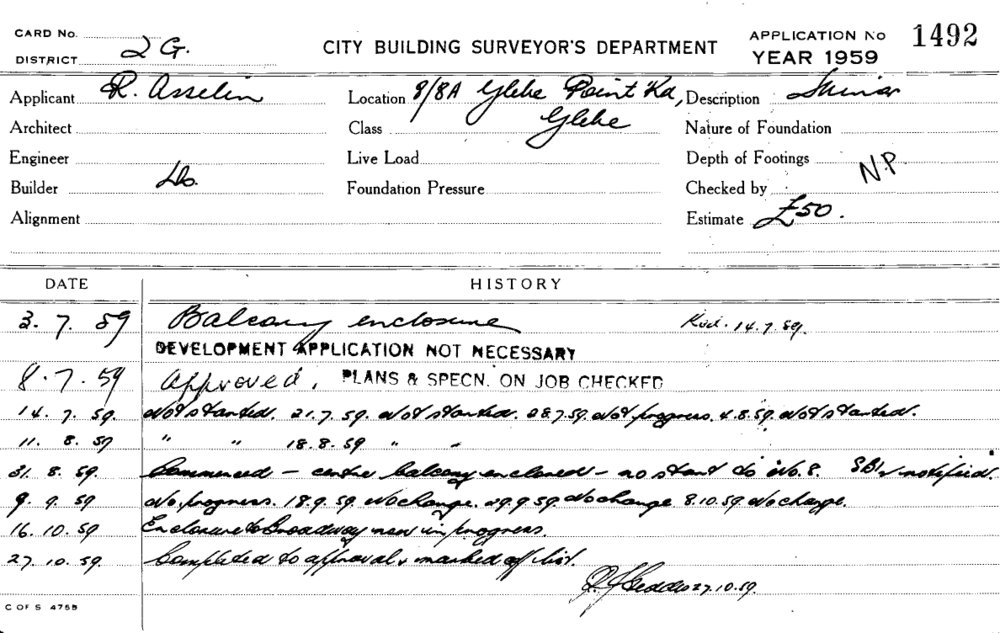 CARD No.
DISTRICT 2 G.
CITY BUILDING SURVEYOR'S DEPARTMENT
APPLICATION No 1492
YEAR 1959
Applicant R. Asselin Location 8/8A Glebe Point Rd, Description Minor
Architect Class Glebe Nature of Foundation
Engineer Live Load Depth of Footings N.P.
Builder Do. Foundation Pressure Checked by
Alignment Estimate £50.
DATE HISTORY
3. 7. 59 Balcony enclosure 14.7.59.
DEVELOPMENT APPLICATION NOT NECESSARY
8. 7. 59 Approved. PLANS & SPECN. ON JOB CHECKED
14. 7. 59. Not started. 21.7.59. Not started. 28.7.59. No progress. 4.8.59. Not started.
11. 8. 59 " " 18.8.59 " "
31. 8. 59. Commenced – centre balcony enclosed – no start to No. 8. notified.
9. 9. 59 No progress. 18.9.59. No change. 29.9.59. No change 8.10.59. No change.
16. 10. 59 Enclosure to Broadway now in progress.
27. 10. 59. Completed to approval & marked off list.
Geddes 27.10.59.
C OF S 4755